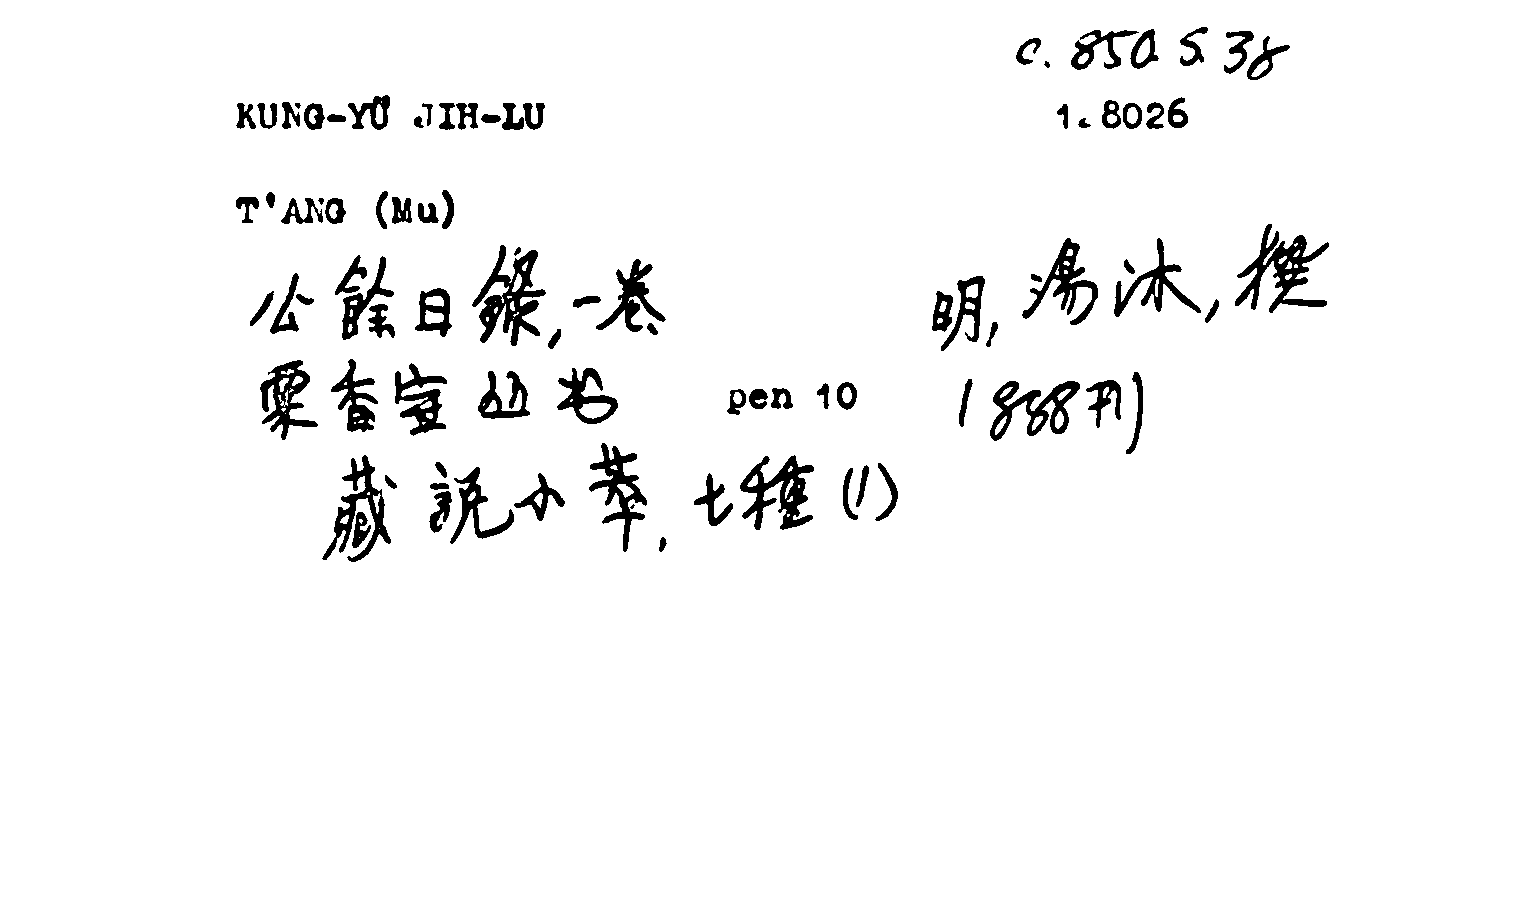 c. 850 S. 38
KUNG-YÜ JIH-LU 1.8026
T'ANG (Mu)
公餘日錄,一卷 明,湯沐,撰
粟香室丛书 pen 10 (1888刊)
藏說小萃,七種(1)